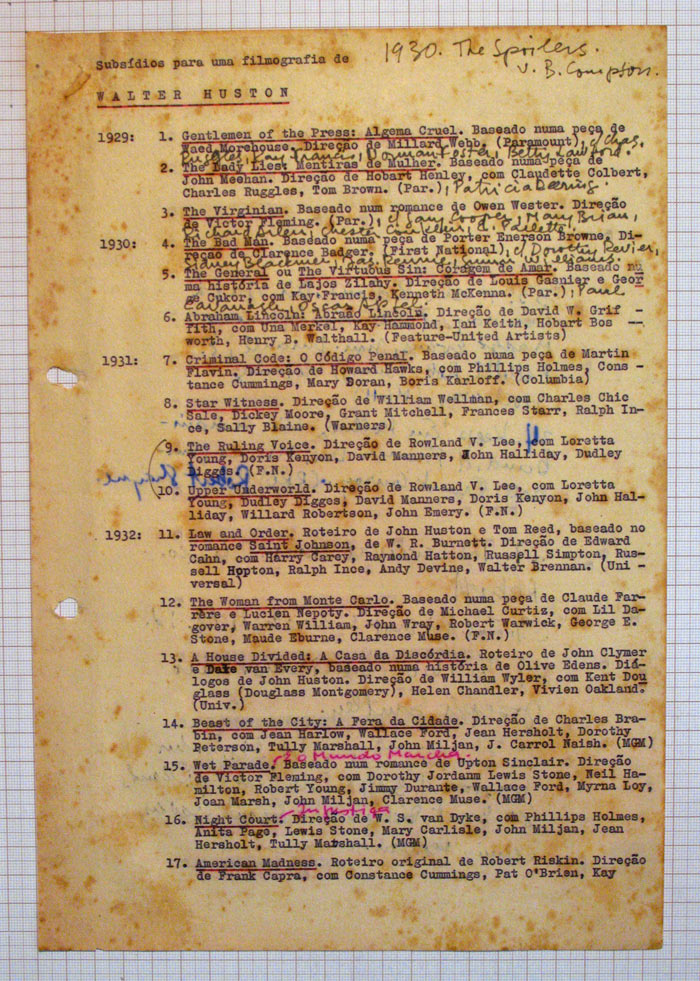 1930. The Spoilers.
v. B. Compson.
Subsídios para uma filmografia de
WALTER HUSTON
1929: 1. Gentlemen of the Press: Algema Cruel. Baseado numa peça de
Waed Morehouse. Direção de Millard Webb. (Paramount), c/ Chas.
Ruggles, Kay Francis, Norman Foster, Betty Lawford.
2. The Lady Lies: Mentiras de Mulher. Baseado numa peça de
John Meehan. Direção de Hobart Henley, com Claudette Colbert,
Charles Ruggles, Tom Brown. (Par.), Patricia Deering.
3. The Virginian. Baseado num romance de Owen Wester. Direção
de Victor Fleming. (Par.), c/ Gary Cooper, Mary Brian,
Richard Arlen, Chester Conklin, E. Pallette.
1930: 4. The Bad Man. Baseado numa peça de Porter Enerson Browne. Di-
reção de Clarence Badger. (First National), c/ Dorothy Revier,
Sidney Blackmer, Jas. Rennie,
5. The General ou The Virtuous Sin: Coragem de Amar. Baseado nu
ma história de Lajos Zilahy. Direção de Louis Gasnier e Geor
ge Cukor, com Kay Francis, Kenneth McKenna. (Par.), Paul
Cavanagh, Oscar Apfel.
6. Abraham Lincoln: Abraão Lincoln. Direção de David W. Grif -
fith, com Una Merkel, Kay Hammond, Ian Keith, Hobart Bos --
worth, Henry B. Walthall. (Feature-United Artists)
1931: 7. Criminal Code: O Código Penal. Baseado numa peça de Martin
Flavin. Direção de Howard Hawks, com Phillips Holmes, Cons -
tance Cummings, Mary Doran, Boris Karloff. (Columbia)
8. Star Witness. Direção de William Wellman, com Charles Chic
Sale, Dickey Moore, Grant Mitchell, Frances Starr, Ralph In-
ce, Sally Blaine. (Warners)
9. The Ruling Voice. Direção de Rowland V. Lee, com Loretta
Young, Doris Kenyon, David Manners, John Halliday, Dudley
Digges. (F.N.)
10. Upper Underworld. Direção de Rowland V. Lee, com Loretta
Young, Dudley Digges, David Manners, Doris Kenyon, John Hal-
liday, Willard Robertson, John Emery. (F.N.)
1932: 11. Law and Order. Roteiro de John Huston e Tom Reed, baseado no
romance Saint Johnson, de W. R. Burnett. Direção de Edward
Cahn, com Harry Carey, Raymond Hatton, Russell Simpton, Rus-
sell Hopton, Ralph Ince, Andy Devine, Walter Brennan. (Uni -
versal)
12. The Woman from Monte Carlo. Baseado numa peça de Claude Far-
rère e Lucien Nepoty. Direção de Michael Curtiz, com Lil Da-
gover, Warren William, John Wray, Robert Warwick, George E.
Stone, Maude Eburne, Clarence Muse. (F.N.)
13. A House Divided: A Casa da Discórdia. Roteiro de John Clymer
e Dale van Every, baseado numa história de Olive Edens. Diá-
logos de John Huston. Direção de William Wyler, com Kent Dou
glass (Douglass Montgomery), Helen Chandler, Vivien Oakland.
(Univ.)
14. Beast of the City: A Fera da Cidade. Direção de Charles Bra-
bin, com Jean Harlow, Wallace Ford, Jean Hersholt, Dorothy
Peterson, Tully Marshall, John Miljan, J. Carrol Naish. (MGM)
O Mundo Marcha
15. Wet Parade. Baseado num romance de Upton Sinclair. Direção
de Victor Fleming, com Dorothy Jordann Lewis Stone, Neil Ha-
milton, Robert Young, Jimmy Durante, Wallace Ford, Myrna Loy,
Joan Marsh, John Miljan, Clarence Muse. (MGM)
Injustiça
16. Night Court. Direção de W. S. van Dyke, com Phillips Holmes,
Anita Page, Lewis Stone, Mary Carlisle, John Miljan, Jean
Hersholt, Tully Marshall. (MGM)
17. American Madness. Roteiro original de Robert Riskin. Direção
de Frank Capra, com Constance Cummings, Pat O'Brien, Kay